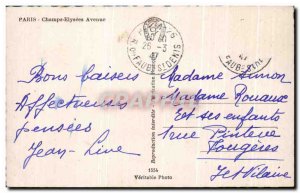 PARIS - Champs-Elysées Avenue
26-3
R.G. FAUBG ST DENIS
Bons Baisers
Affectueuses
pensées
Jean-Line
Madame Simon
Madame Rouaux
et ses enfants
1 rue Pinterie
Fougères
Ile et Vilaine
Reproduction interdite
1554
Véritable Photo